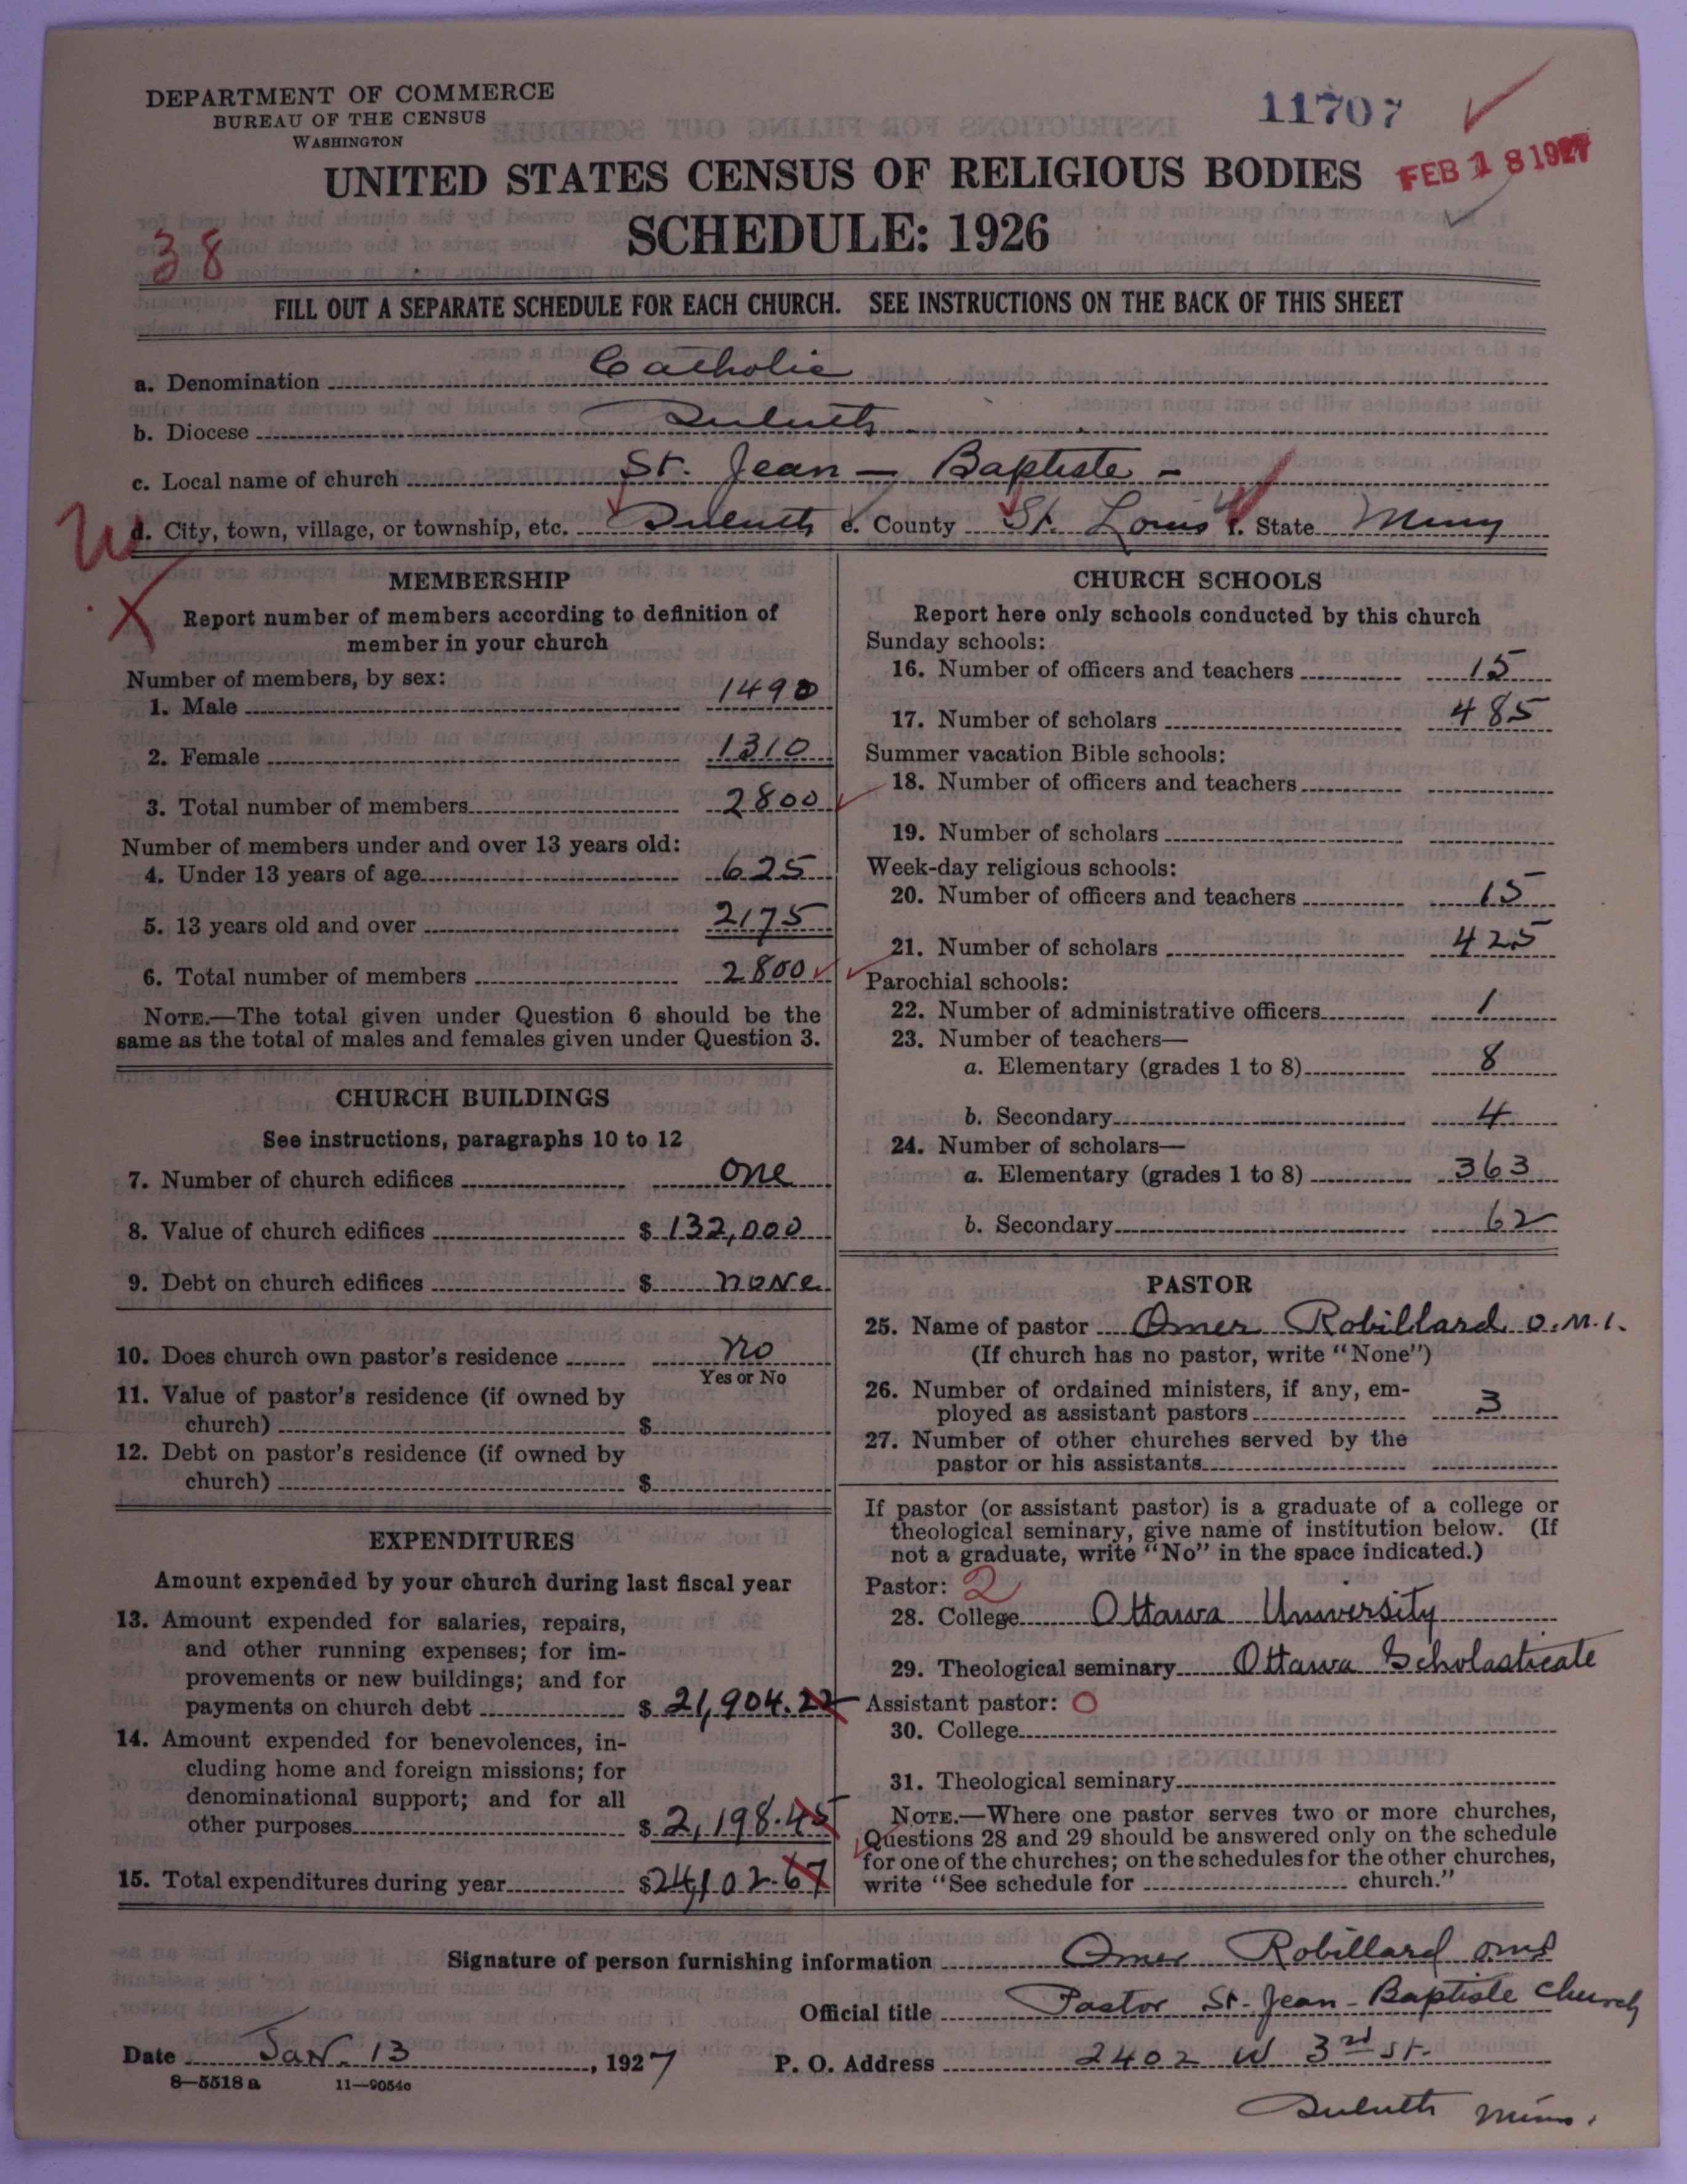 DEPARTMENT OF COMMERCE
BUREAU OF THE CENSUS
WASHINGTON
11707
FEB 18 1927
UNITED STATES CENSUS OF RELIGIOUS BODIES
SCHEDULE: 1926
38
FILL OUT A SEPARATE SCHEDULE FOR EACH CHURCH. SEE INSTRUCTIONS ON THE BACK OF THIS SHEET
a. Denomination Catholic
b. Diocese Duluth
c. Local name of church St. Jean - Baptiste -
d. City, town, village, or township, etc. Duluth e. County St. Louis f. State Minn
MEMBERSHIP
Report number of members according to definition of
member in your church
Number of members, by sex:
1. Male 1490
2. Female 1310
3. Total number of members 2800
Number of members under and over 13 years old:
4. Under 13 years of age 625
5. 13 years old and over 2175
6. Total number of members 2800
NOTE.—The total given under Question 6 should be the
same as the total of males and females given under Question 3.
CHURCH BUILDINGS
See instructions, paragraphs 10 to 12
7. Number of church edifices one
8. Value of church edifices $ 132,000
9. Debt on church edifices $ none
10. Does church own pastor's residence no
Yes or No
11. Value of pastor's residence (if owned by
church) $
12. Debt on pastor's residence (if owned by
church) $
EXPENDITURES
Amount expended by your church during last fiscal year
13. Amount expended for salaries, repairs,
and other running expenses; for im-
provements or new buildings; and for
payments on church debt $ 21,904.22
14. Amount expended for benevolences, in-
cluding home and foreign missions; for
denominational support; and for all
other purposes $ 2,198.45
15. Total expenditures during year $24,102.67
CHURCH SCHOOLS
Report here only schools conducted by this church
Sunday schools:
16. Number of officers and teachers 15
17. Number of scholars 485
Summer vacation Bible schools:
18. Number of officers and teachers
19. Number of scholars
Week-day religious schools:
20. Number of officers and teachers 15
21. Number of scholars 425
Parochial schools:
22. Number of administrative officers 1
23. Number of teachers—
a. Elementary (grades 1 to 8) 8
b. Secondary 4
24. Number of scholars—
a. Elementary (grades 1 to 8) 363
b. Secondary 62
PASTOR
25. Name of pastor Omer Robillard O.M.I.
(If church has no pastor, write "None")
26. Number of ordained ministers, if any, em-
ployed as assistant pastors 3
27. Number of other churches served by the
pastor or his assistants
If pastor (or assistant pastor) is a graduate of a college or
theological seminary, give name of institution below. (If
not a graduate, write "No" in the space indicated.)
Pastor: 2
28. College Ottawa University
29. Theological seminary Ottawa Scholasticate
Assistant pastor: 0
30. College
31. Theological seminary
NOTE.—Where one pastor serves two or more churches,
Questions 28 and 29 should be answered only on the schedule
for one of the churches; on the schedules for the other churches,
write "See schedule for church."
Signature of person furnishing information Omer Robillard omI
Official title Pastor St-Jean-Baptiste Church
Date Jan. 13, 1927 P. O. Address 2402 W 3rd St.
8—5518a 11—9054c
Duluth Minn.